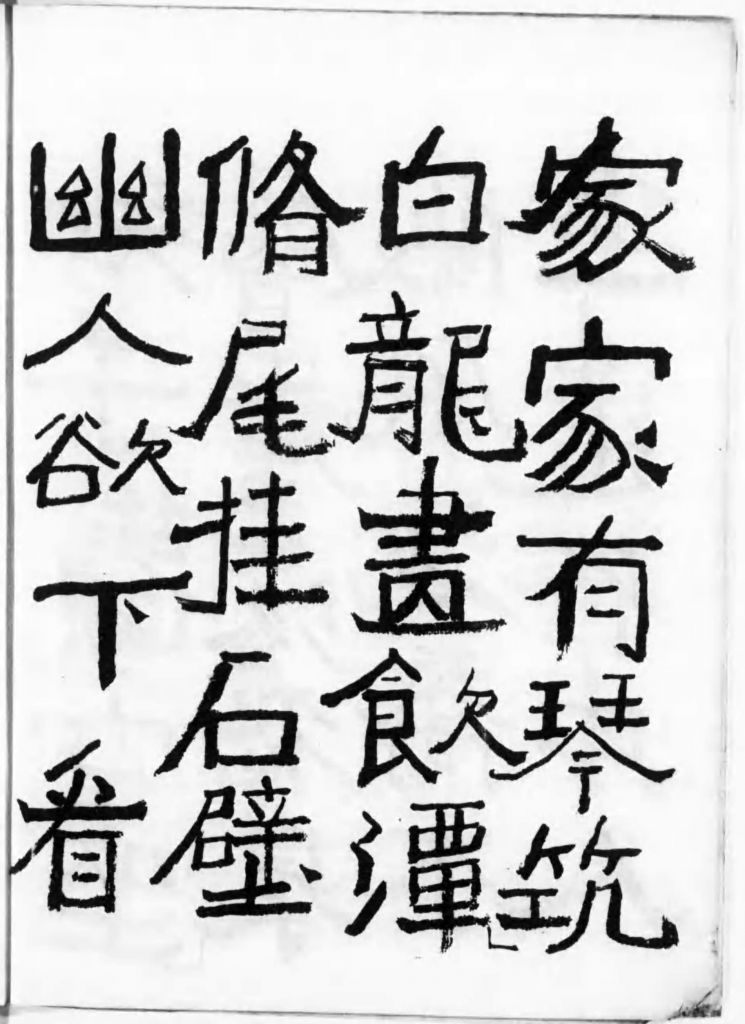 家家有琴筑
白龍晝飲潭
脩尾挂石壁
幽人欲下看